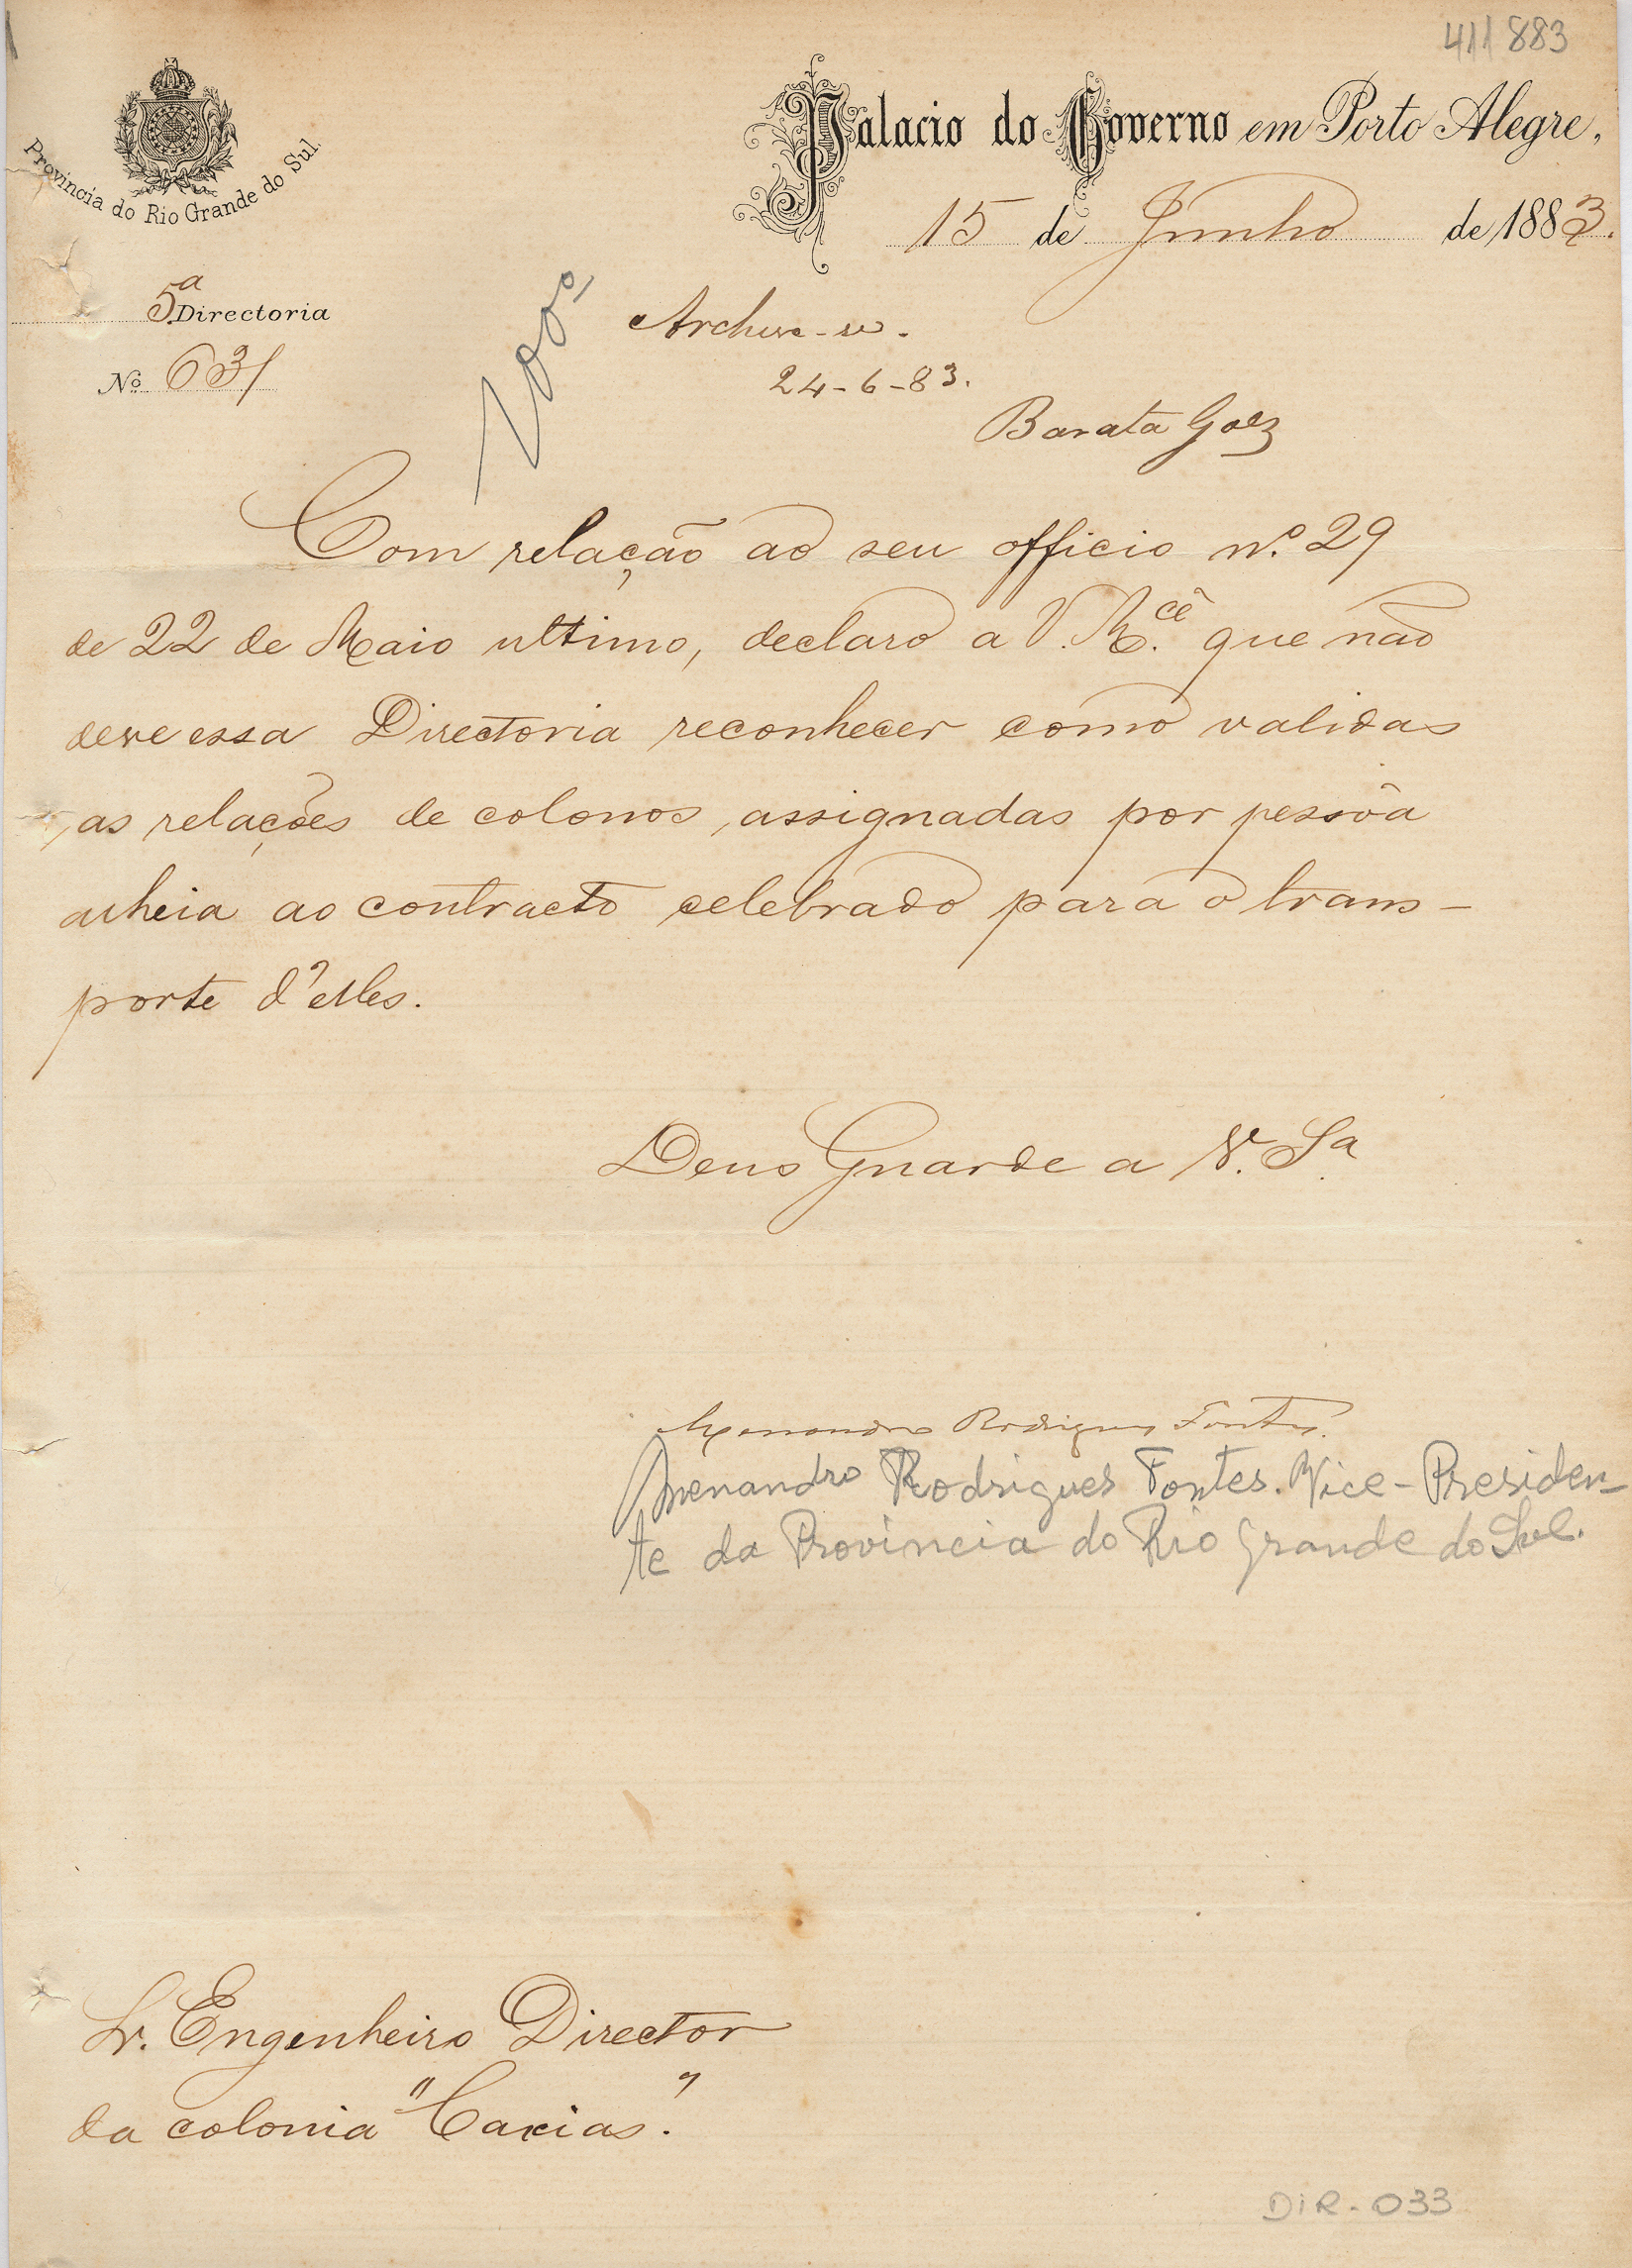 411883
Provincia do Rio Grande do Sul.
Palacio do Governo em Porto Alegre,
15 de Junho de 1883.
5.a Directoria
No 631
Archive-se.
24-6-83.
Barata Goes
Com relação ao seu officio n.º 29
de 22 de Maio ultimo, declaro a V. M.cê que não
deve essa Directoria reconhecer como validas
as relações de colonos, assignadas por pessôa
alheia ao contracto celebrado para o trans-
porte d'elles.
Deus Guarde a V. Sa.
Menandro Rodrigues Fontes.
Menandro Rodrigues Fontes. Vice-Presiden-
te da Provincia do Rio Grande do Sul.
Sr. Engenheiro Director
da colonia "Caxias".
DIR-033